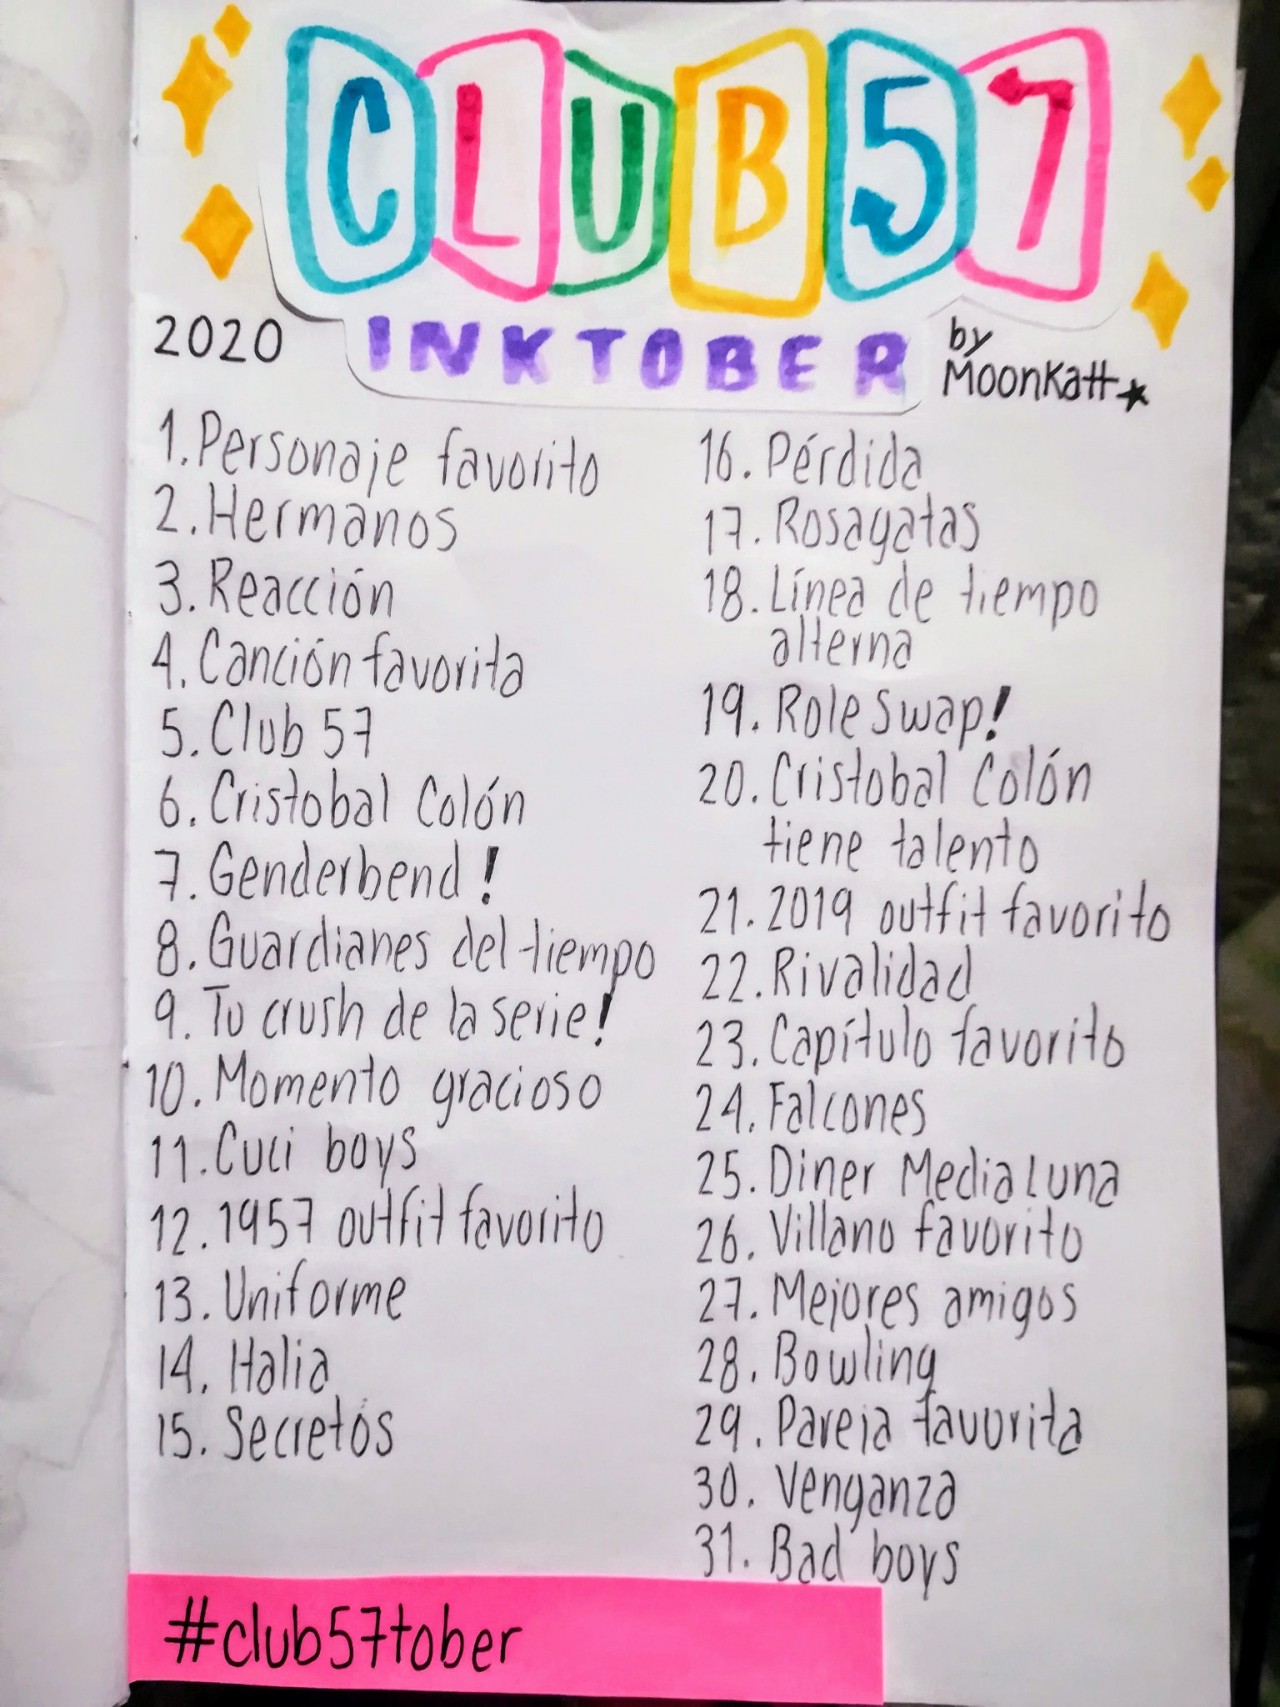 CLUB57
2020
INKTOBER
by
MOONKAtt
1. Personaje favorito
2. Hermanos
3. Reacción
4. Canción favorita
5. Club 57
6. Cristobal Colón
7. Genderbend!
8. Guardianes del tiempo
9. Tu crush de la serie!
10. Momento gracioso
11. Cuci boys
12. 1957 outfit favorito
13. Uniforme
14. Halia
15. Secretos
16. Pérdida
17. Rosagatas
18. Línea de tiempo
alterna
19. Role Swap!
20. Cristobal Colón
tiene talento
21. 2019 outfit favorito
22. Rivalidad
23. Capítulo favorito
24. Falcones
25. Diner Media Luna
26. Villano favorito
27. Mejores amigos
28. Bowling
29. Pareja favorita
30. Venganza
31. Bad boys
#club57tober